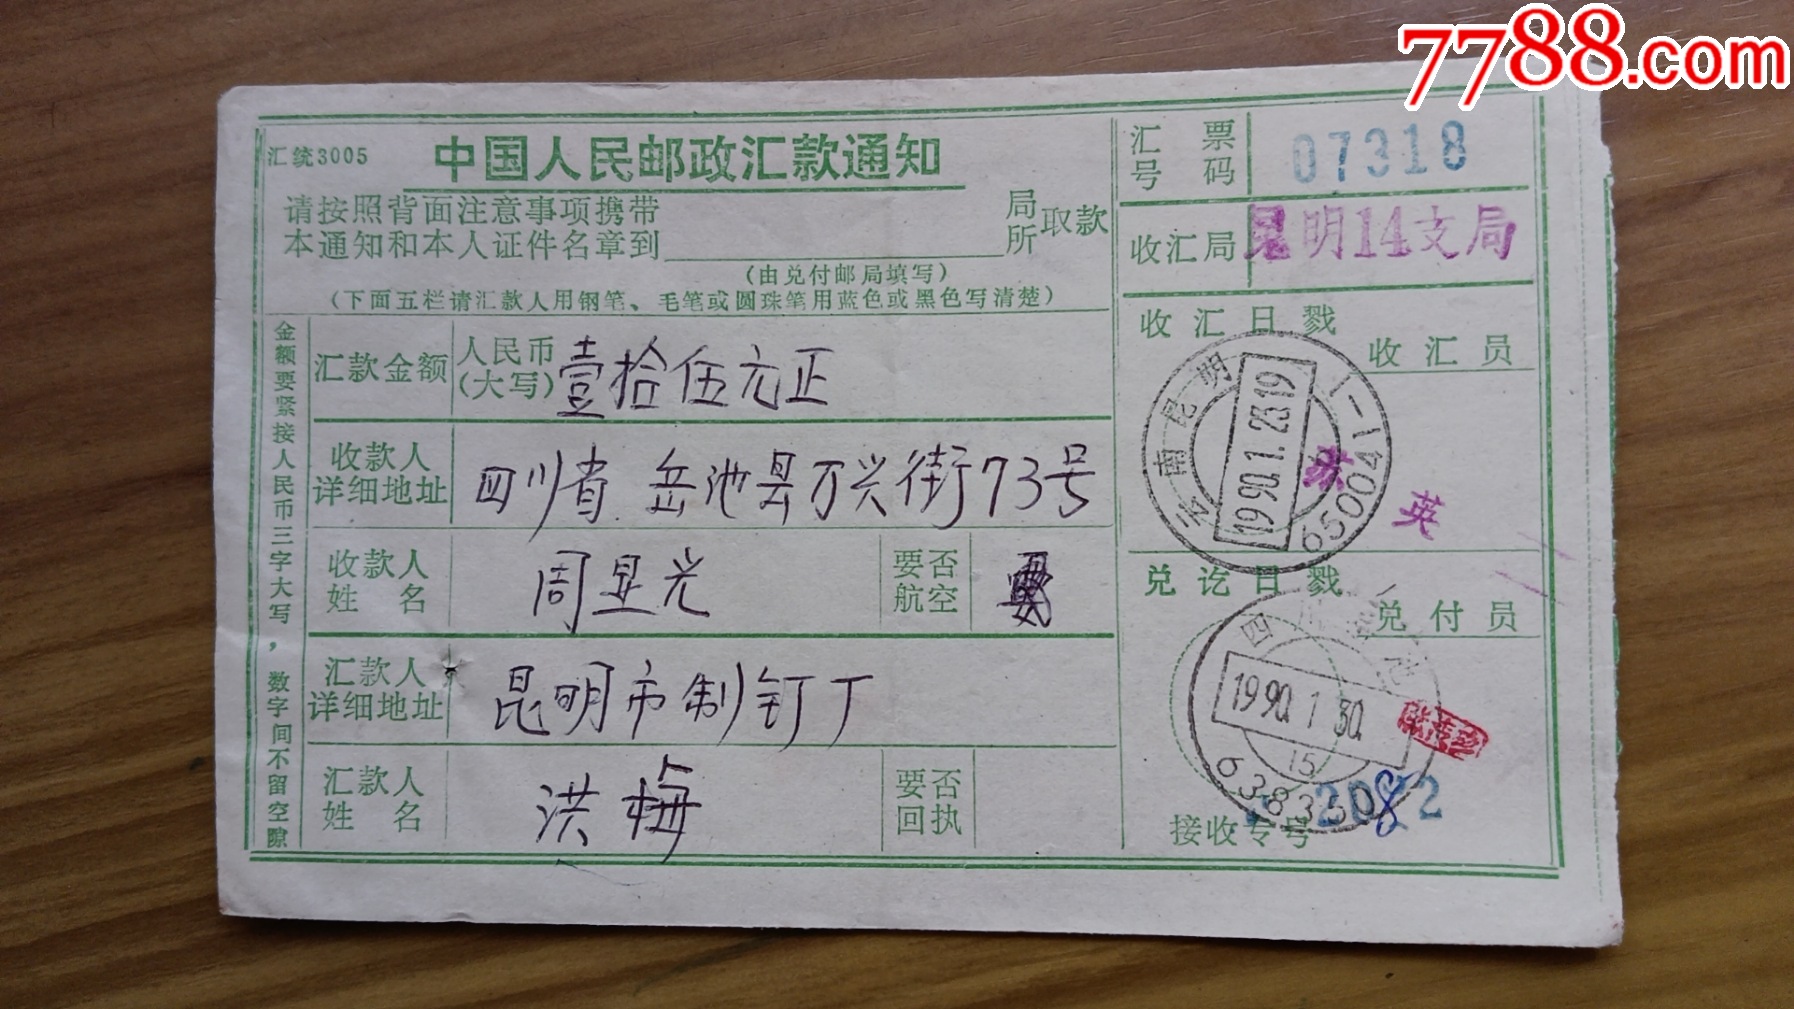 7788.com
汇统3005
中国人民邮政汇款通知
请按照背面注意事项携带
本通知和本人证件名章到
局
所
取款
(由兑付邮局填写)
(下面五栏请汇款人用钢笔、毛笔或圆珠笔用蓝色或黑色写清楚)
金额要紧接人民币三字大写，数字间不留空隙
汇款金额
人民币
(大写)
壹拾伍元正
收款人
详细地址
四川省 岳池县万兴街73号
收款人
姓 名
周显光
要否
航空
汇款人
详细地址
昆明市制钉厂
汇款人
姓 名
洪梅
要否
回执
汇 票
号 码
07318
收汇局
昆明14支局
收汇日戳
收汇员
云南昆明
1990.1.23.19
650041-1
苏英
兑讫日戳
兑付员
四川岳池
1990.1.30.
15
638350
接收专号